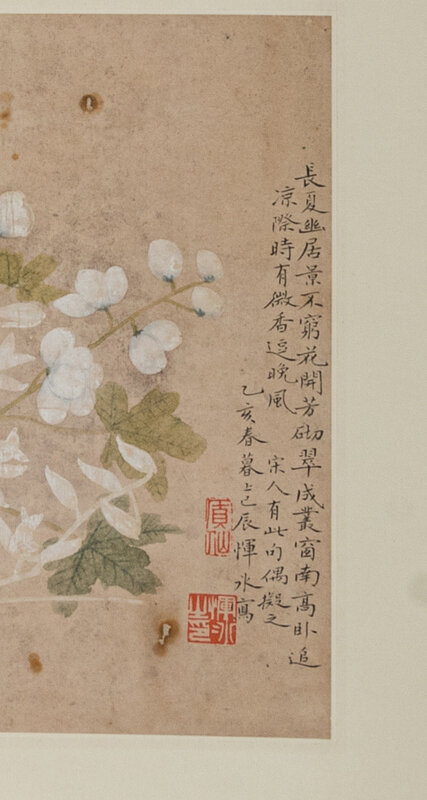 長夏幽居景不窮花開芳砌翠成叢窗南高卧追
凉際時有微香逗晚風
宋人有此句偶擬之
乙亥春暮上巳辰惲冰寫
惲冰之印